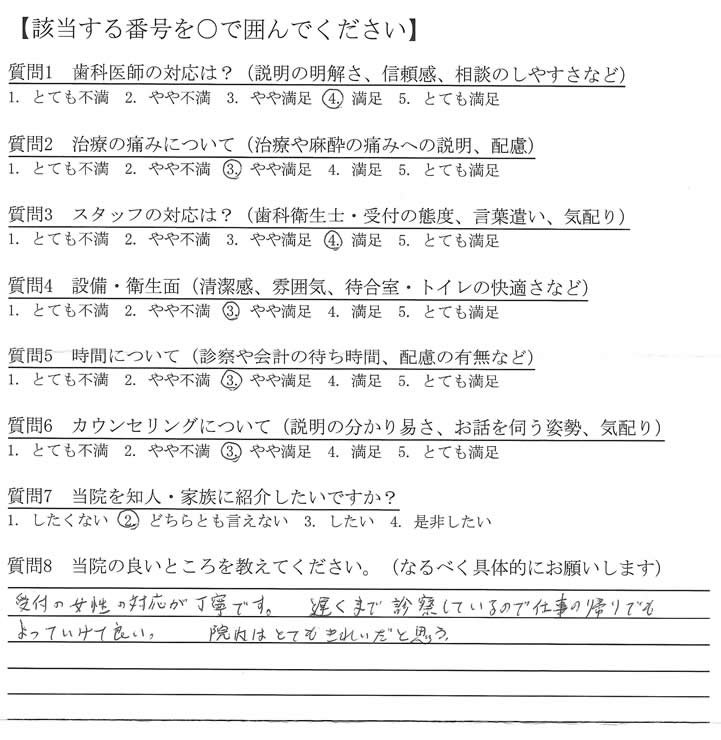 【該当する番号を○で囲んでください】
質問1　歯科医師の対応は？（説明の明解さ、信頼感、相談のしやすさなど）
1. とても不満　2. やや不満　3. やや満足　4. 満足　5. とても満足
質問2　治療の痛みについて（治療や麻酔の痛みへの説明、配慮）
1. とても不満　2. やや不満　3. やや満足　4. 満足　5. とても満足
質問3　スタッフの対応は？（歯科衛生士・受付の態度、言葉遣い、気配り）
1. とても不満　2. やや不満　3. やや満足　4. 満足　5. とても満足
質問4　設備・衛生面（清潔感、雰囲気、待合室・トイレの快適さなど）
1. とても不満　2. やや不満　3. やや満足　4. 満足　5. とても満足
質問5　時間について（診察や会計の待ち時間、配慮の有無など）
1. とても不満　2. やや不満　3. やや満足　4. 満足　5. とても満足
質問6　カウンセリングについて（説明の分かり易さ、お話を伺う姿勢、気配り）
1. とても不満　2. やや不満　3. やや満足　4. 満足　5. とても満足
質問7　当院を知人・家族に紹介したいですか？
1. したくない　2. どちらとも言えない　3. したい　4. 是非したい
質問8　当院の良いところを教えてください。（なるべく具体的にお願いします）
受付の女性の対応が丁寧です。　遅くまで診察しているので仕事の帰りでも
よっていけて良い。　院内はとてもきれいだと思う。